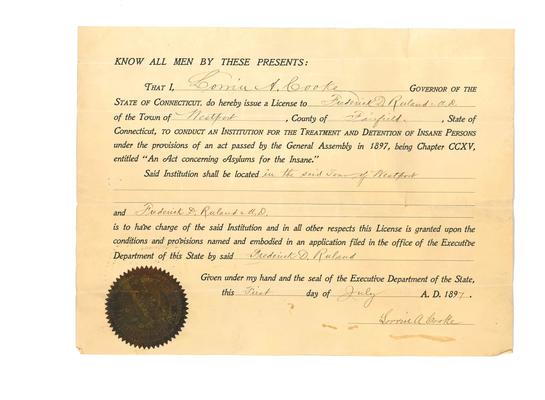 KNOW ALL MEN BY THESE PRESENTS:
THAT I, Lorrin A. Cooke GOVERNOR OF THE
STATE OF CONNECTICUT, do hereby issue a License to Frederick D. Ruland M.D.
of the Town of Westport, County of Fairfield, State of
Connecticut, TO CONDUCT AN INSTITUTION FOR THE TREATMENT AND DETENTION OF INSANE PERSONS
under the provisions of an act passed by the General Assembly in 1897, being Chapter CCXV,
entitled "An Act concerning Asylums for the Insane."
Said Institution shall be located in the said Town of Westport
and Frederick D. Ruland M.D.
is to have charge of the said Institution and in all other respects this License is granted upon the
conditions and provisions named and embodied in an application filed in the office of the Executive
Department of this State by said Frederick D. Ruland
Given under my hand and the seal of the Executive Department of the State,
this First day of July A. D. 1897.
Lorrin A. Cooke